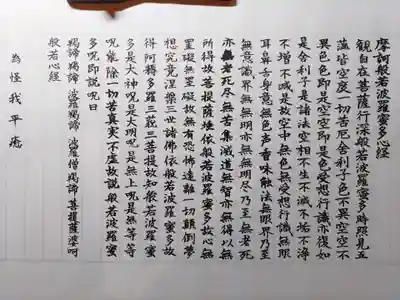 摩訶般若波羅蜜多心経
観自在菩薩行深般若波羅蜜多時照見五
蘊皆空度一切苦厄舎利子色不異空空不
異色色即是空空即是色受想行識亦復如
是舎利子是諸法空相不生不滅不垢不浄
不増不減是故空中無色無受想行識無眼
耳鼻舌身意無色声香味触法無眼界乃至
無意識界無無明亦無無明尽乃至無老死
亦無老死尽無苦集滅道無智亦無得以無
所得故菩提薩埵依般若波羅蜜多故心無
罣礙無罣礙故無有恐怖遠離一切顛倒夢
想究竟涅槃三世諸仏依般若波羅蜜多故
得阿耨多羅三藐三菩提故知般若波羅蜜
多是大神呪是大明呪是無上呪是無等等
呪能除一切苦真実不虚故説般若波羅蜜
多呪即説呪曰
羯諦羯諦 波羅羯諦 波羅僧羯諦 菩提薩婆呵
般若心経
為怪我平癒